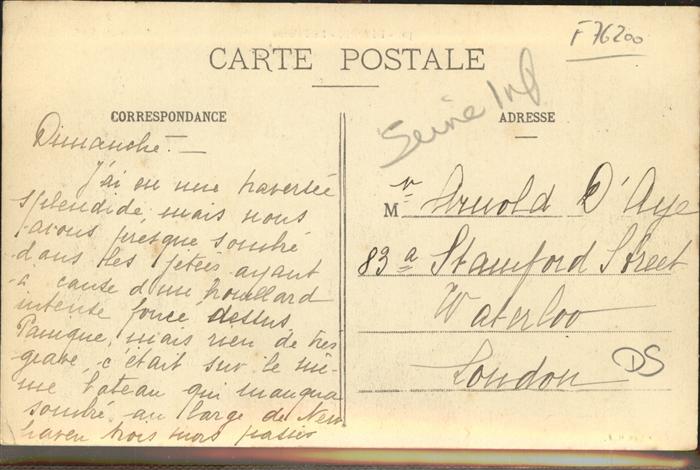 F 76200
CARTE POSTALE
Seine Inf
CORRESPONDANCE
ADRESSE
Dimanche. —
J'ai eu une traversée
splendide, mais nous
avons presque sombré
dans les jetées ayant
à cause d'un brouillard
intense foncé dessus
Panique, mais rien de très
grave c'était sur le mê-
me bateau qui manqua
sombrer au large de New
haven trois mois passés
Mr Arnold D'Aye
83a Stamford Street
Waterloo
London
DS